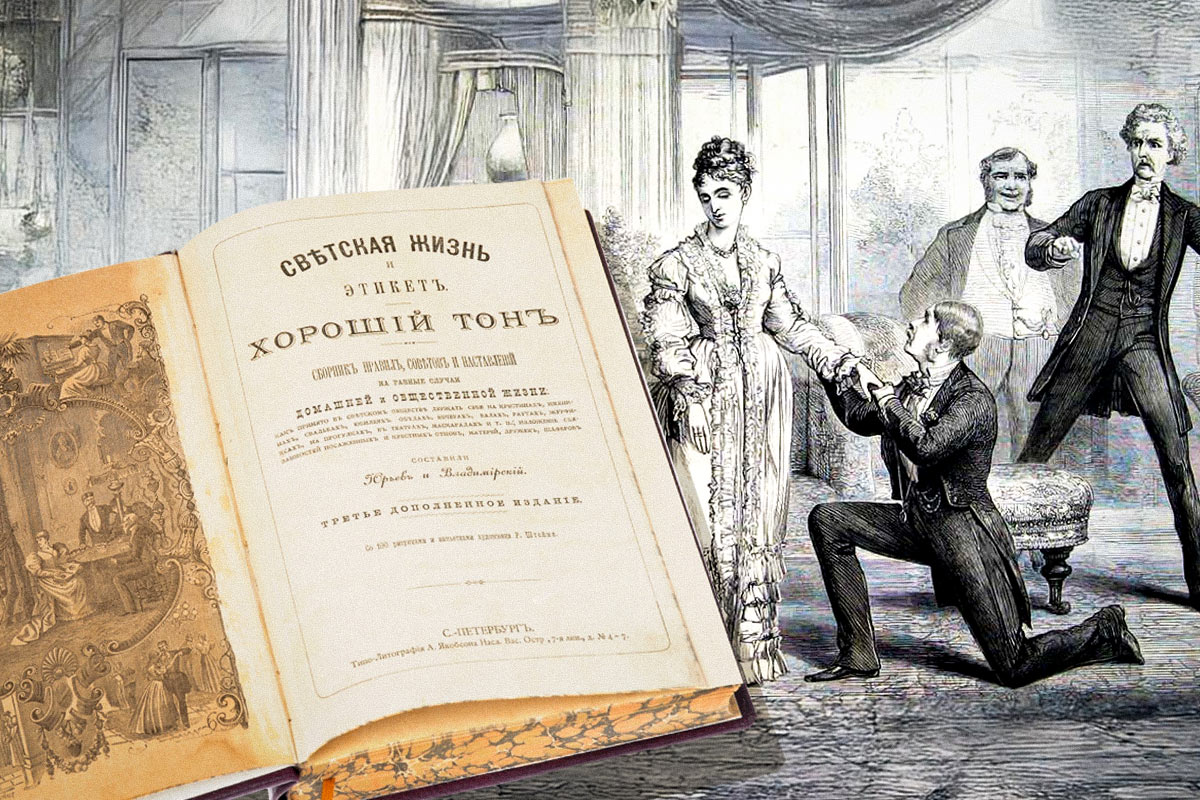 СВѢТСКАЯ ЖИЗНЬ
И
ЭТИКЕТЪ.
ХОРОШІЙ ТОНЪ
СБОРНИКЪ ПРАВИЛЪ, СОВѢТОВЪ И НАСТАВЛЕНІЙ
НА РАЗНЫЕ СЛУЧАИ
ДОМАШНЕЙ И ОБЩЕСТВЕННОЙ ЖИЗНИ:
КАКЪ ПРИНЯТО ВЪ СВѢТСКОМЪ ОБЩЕСТВѢ ДЕРЖАТЬ СЕБЯ НА КРЕСТИНАХЪ, ИМЕНИ-
НАХЪ, СВАДЬБАХЪ, ЮБИЛЕЯХЪ, ОБѢДАХЪ, ВЕЧЕРАХЪ, БАЛАХЪ, РАУТАХЪ, ЖУРФИ-
КСАХЪ, НА ПРОГУЛКАХЪ, ВЪ ТЕАТРАХЪ, МАСКАРАДАХЪ И Т. П.; ИЗЛОЖЕНІЕ ОБЯ-
ЗАННОСТЕЙ ПОСАЖЕННЫХЪ И КРЕСТНЫХЪ ОТЦОВЪ, МАТЕРЕЙ, ДРУЖЕКЪ, ШАФЕРОВЪ
СОСТАВИЛИ
Юрьевъ и Владимірскій.
ТРЕТЬЕ ДОПОЛНЕННОЕ ИЗДАНІЕ,
Со рисунками и виньетками художника Р. Штейна.
С.-ПЕТЕРБУРГЪ.
Типо-Литографія А. Якобсона Насл. Вас. Остр., 7-я лин., д. № 4–7.